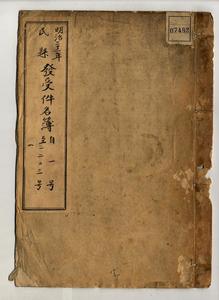 07493
明治三年
民縣 發受件名簿
自一号
至一二二三号